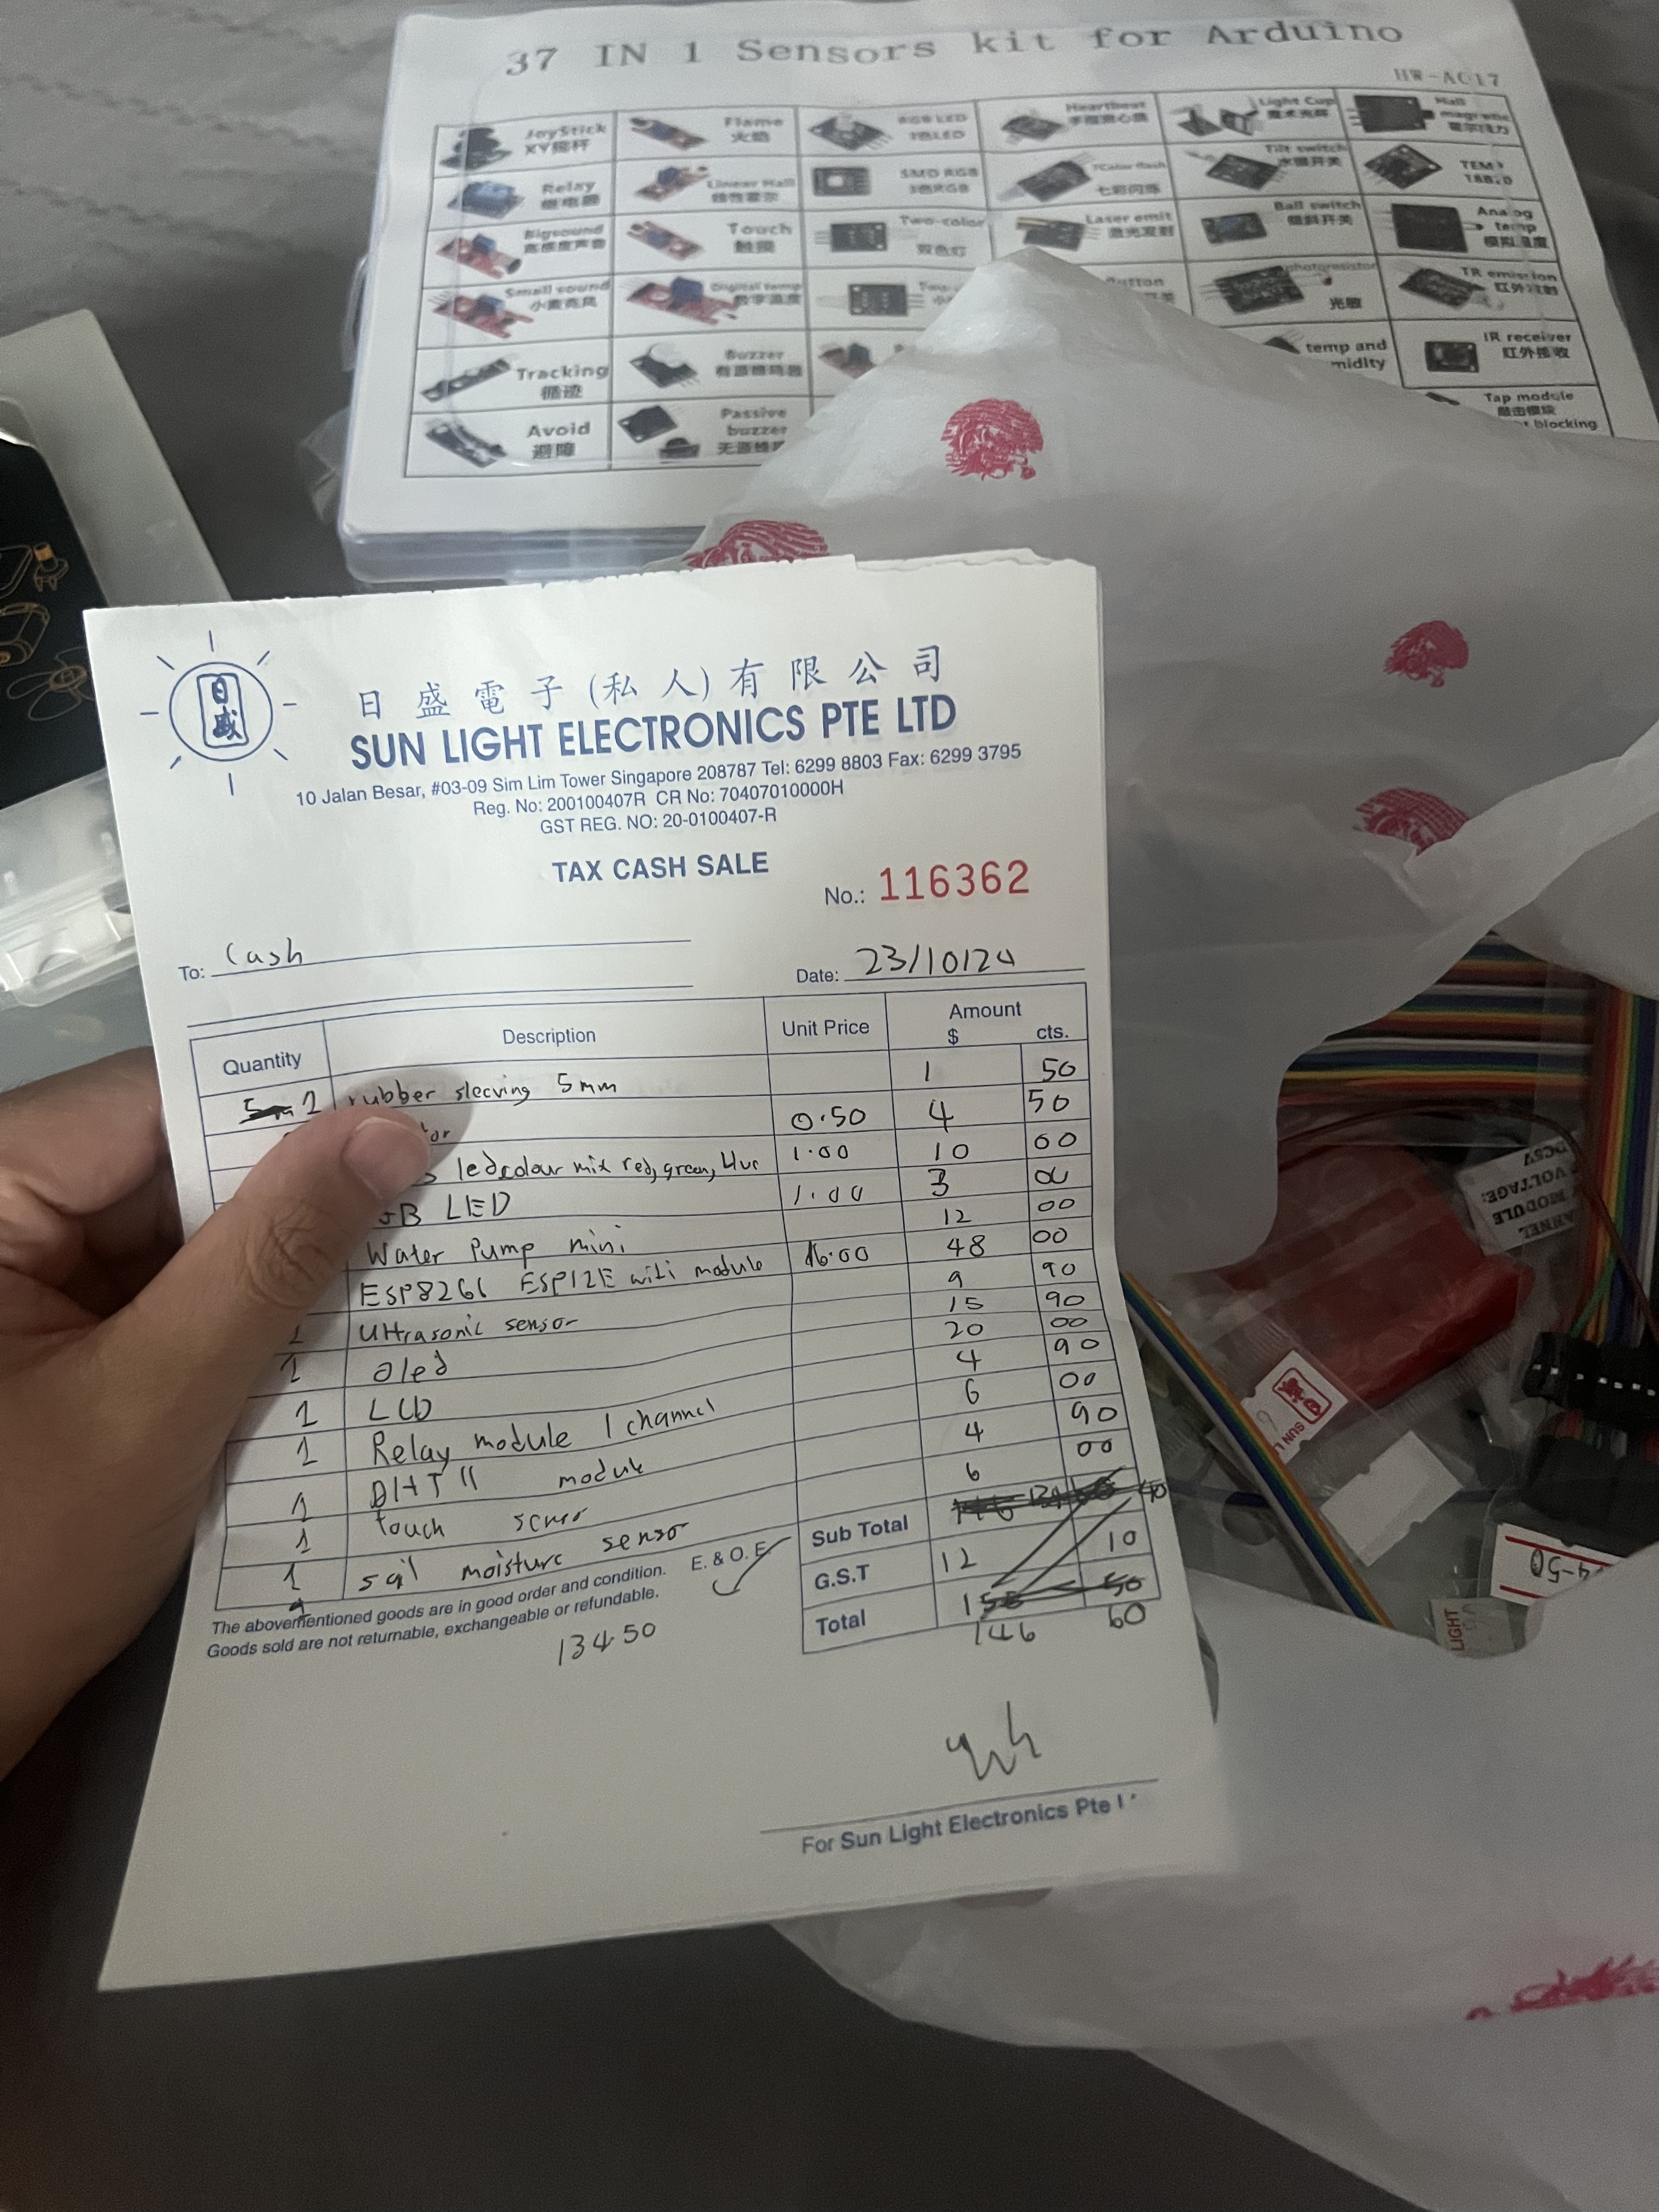 37 IN 1 Sensors kit for Arduino
HW-AC17
JoyStick
XY摇杆
Flame
火焰
RGB LED
Heartbeat
Light Cup
Hall
magnetic
Relay
继电器
Linear Hall
SMD RGB
3色RGB
7Color flash
七彩闪烁
Tilt switch
TEMP
Bigsound
Touch
触摸
Two-color
双色灯
Laser emit
激光发射
Ball switch
倾斜开关
Analog
temp
模拟温度
Small sound
小麦克风
Digital temp
数字温度
photoresistor
光敏
IR receiver
红外接收
Tracking
循迹
Buzzer
temp and
midity
Avoid
避障
Passive
buzzer
Tap module
敲击模块
blocking
日盛
日盛電子(私人)有限公司
SUN LIGHT ELECTRONICS PTE LTD
10 Jalan Besar, #03-09 Sim Lim Tower Singapore 208787 Tel: 6299 8803 Fax: 6299 3795
Reg. No: 200100407R CR No: 70407010000H
GST REG. NO: 20-0100407-R
TAX CASH SALE
No.: 116362
To: Cash
Date: 23/10/24
Quantity Description Unit Price Amount
$ cts.
2 rubber sleeving 5mm 1 50
tor 0.50 4 50
led colour mix red, green, 1.00 10 00
B LED 1.00 3 00
Water Pump mini 12 00
ESP8266 ESP12E wifi module 16.00 48 00
1 Ultrasonic sensor 9 90
1 oled 15 90
1 LCD 20 00
1 Relay module 1 channel 4 90
1 DHT 11 module 6 00
1 touch sensor 4 90
1 soil moisture sensor 6 00
Sub Total
G.S.T 12 10
Total 146 60
The abovementioned goods are in good order and condition. E. & O. E.
Goods sold are not returnable, exchangeable or refundable.
134.50
For Sun Light Electronics Pte
MODULE
VOLTAGE:
SUN
LIGHT